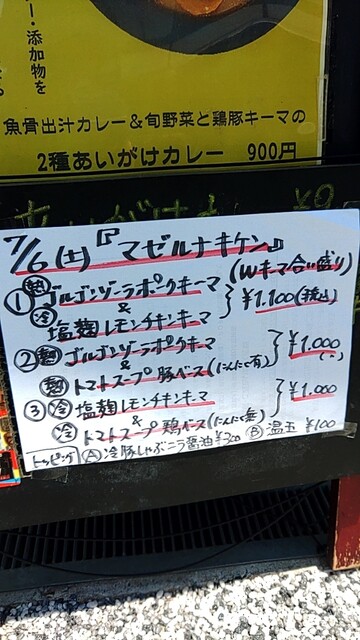 ー・添加物を
魚骨出汁カレー＆旬野菜と鶏豚キーマの
2種あいがけカレー 900円
7/6(土)『マゼルナキケン』
(Wキーマ合い盛り)
①熱ゴルゴンゾーラポークキーマ
&
冷塩麹レモンチキンキーマ
}¥1.100(税込)
②熱ゴルゴンゾーラポークキーマ
&
熱トマトスープ豚ベース(にんにく有)
}¥1.000
(〃)
③冷塩麹レモンチキンキーマ
&
冷トマトスープ鶏ベース(にんにく無)
}¥1.000
トッピング Ⓐ冷豚しゃぶニラ醤油¥300 Ⓑ温玉 ¥100